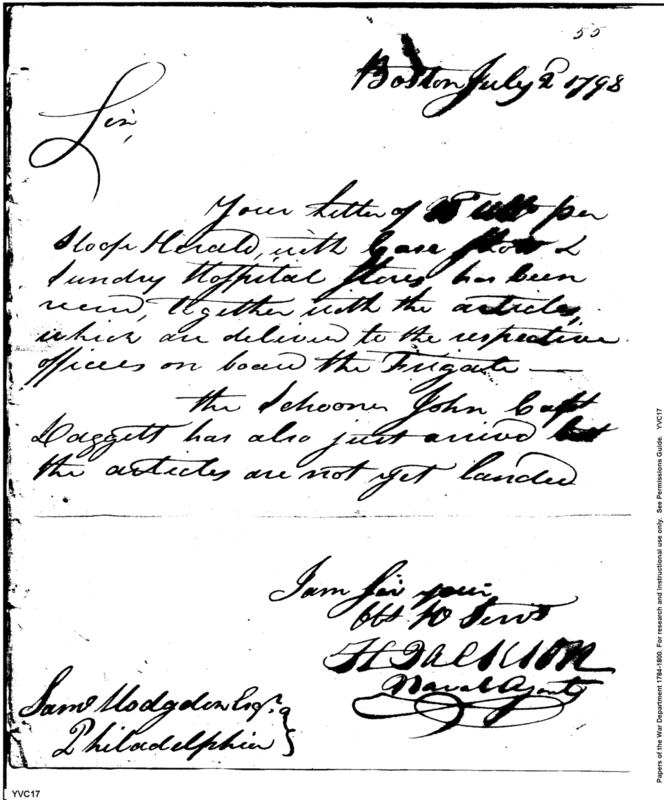 55
Boston July 2d 1798
Sir,
Your Letter of per
Sloop Herald, with Case &
Sundry Hospital Stores has been
recivd, together with the articles,
which are deliverd to the respective
officers on board the Frigate —
the Schooner John Capt
Daggett has also just arrived but
the articles are not yet landed
I am Sir your
Obt H Servt
H JACKSON
Naval Agent
Saml Hodgdon Esqr.
Philadelphia
YVC17
Papers of the War Department 1784-1800. For research and instructional use only. See Permissions Guide. YVC17